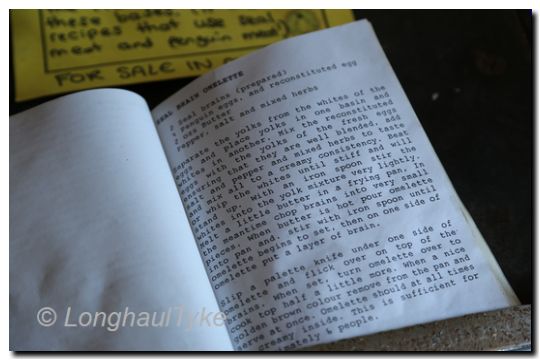 these bases. In
recipes that use seal
meat and penguin meal)
FOR SALE IN
SEAL BRAIN OMELETTE
2 Seal brains (prepared)
4 Penguin eggs, and reconstituted egg
2 ozs butter
Pepper, salt and mixed herbs
Separate the yolks from the whites of the
eggs and place yolks in one basin and
whites in another. Mix the reconstituted
eggs with the yolks of the fresh eggs
ensuring that they are well blended, add
salt and pepper and mixed herbs to taste
and mix all to a creamy consistency. Beat
or whip the whites until stiff and will
stand up, with an iron spoon stir the
whites into the yolk mixture very lightly.
Melt a little butter in a frying pan. In
the meantime chop brains into very small
pieces. When butter is hot pour omelette
into pan and, stir with iron spoon until
omelette begins to set, then on one side of
omelette put a layer of brain.
Slip a palette knife under one side of
omelette and flick over on top of the
brains. When set, turn omelette over to
cook top half a little more. When a nice
golden brown colour remove from the pan and
serve at once. Omelette should at all times
be creamy inside. This is sufficient for
approximately 4 people.
© LonghaulTyke